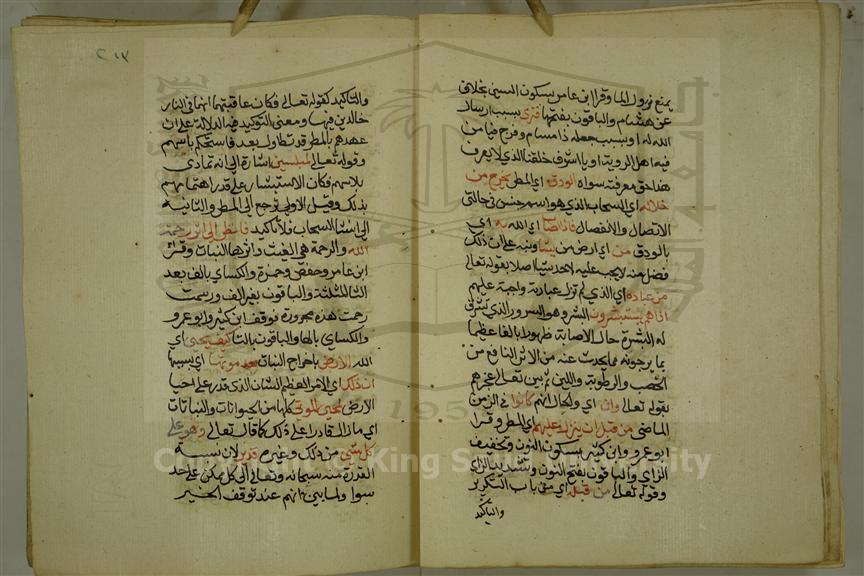 يمنع نزول الما وقرا ابن عامر بسكون السين بخلاف
عن هشام والباقون بفتحها فترى بسبب ارسال
الله له او بسبب جعله ذا مسام وفرج يا من
فيه اهل الروية او يا اشرف خلقنا الذي لا يعرف
هذا حق معرفته سواه الودق اي المطر يخرج من
خلاله اي السحاب الذي هو اسم جنس في حالتي
الاتصال والانفصال فاذا اصاب اي الله به اي
بالودق من اي ارض من يشا ونبه على ان ذلك
فضل منه لا يجب عليه لاحد شيا اصلا بقوله تعالى
من عباده اي الذي لم تزل عبادته واجبة عليهم
اذا هم يستبشرون البشر وهو السرور الذي تشرق
له البشرة حال الاصابة ظهورا بالغا عظيما
بما يرجونه مما يحدث عنه من الاثر النافع من
الخصب والرطوبة واللين ثم بين تعالى عجزهم
بقوله تعالى وان اي والحال انهم كانوا في الزمن
الماضي من قبل ان ينزل عليهم اي المطر وقرا
ابو عمرو وابن كثير بسكون النون وتخفيف
الزاي والباقون بفتح النون وتشديد الزاي
وقوله تعالى من قبله اي من باب التكرير
والتاكيد
٢١٣
والتاكيد كقوله تعالى فكان عاقبتهما انهما في النار
خالدين فيها ومعنى التوكيد فيه الدلالة على ان
عهدهم بالمطر قد تطاول وبعد فاستحكم باسهم
وقوله تعالى لمبلسين اشارة الى انه تمادى
بلاسهم فكان الاستبشار على قدر اهتمامهم
بذلك وقيل الاولى ترجع الى المطر والثانية
الى انشا السحاب فلا تاكيد فانظر الى اثر رحمة
الله والرحمة هي الغيث واثرها النبات وقرا
ابن عامر وحفص وحمزة والكساي بالف بعد
الثا المثلثة والباقون بغير الف ورسمت
رحمت هذه مجرورة فوقف ابن كثير وابو عمرو
والكساي بالها والباقون بالتا كيف يحيى اي
الله الارض باخراج النبات بعد موتها اي يبسها
ان ذلك اي الامر العظيم الشان الذي قدر على احيا
الارض لمحيي الموتى كلها من الحيوانات والنباتات
اي ما زال قادرا على ذلك كما قال تعالى وهو على
كل شي من ذلك وغيره قدير لان نسبة
القدرة منه سبحانه وتعالى الى كل ممكن على حد
سوا ولما بين انهم عند توقف الخير
Copyright © King Saud University
1957